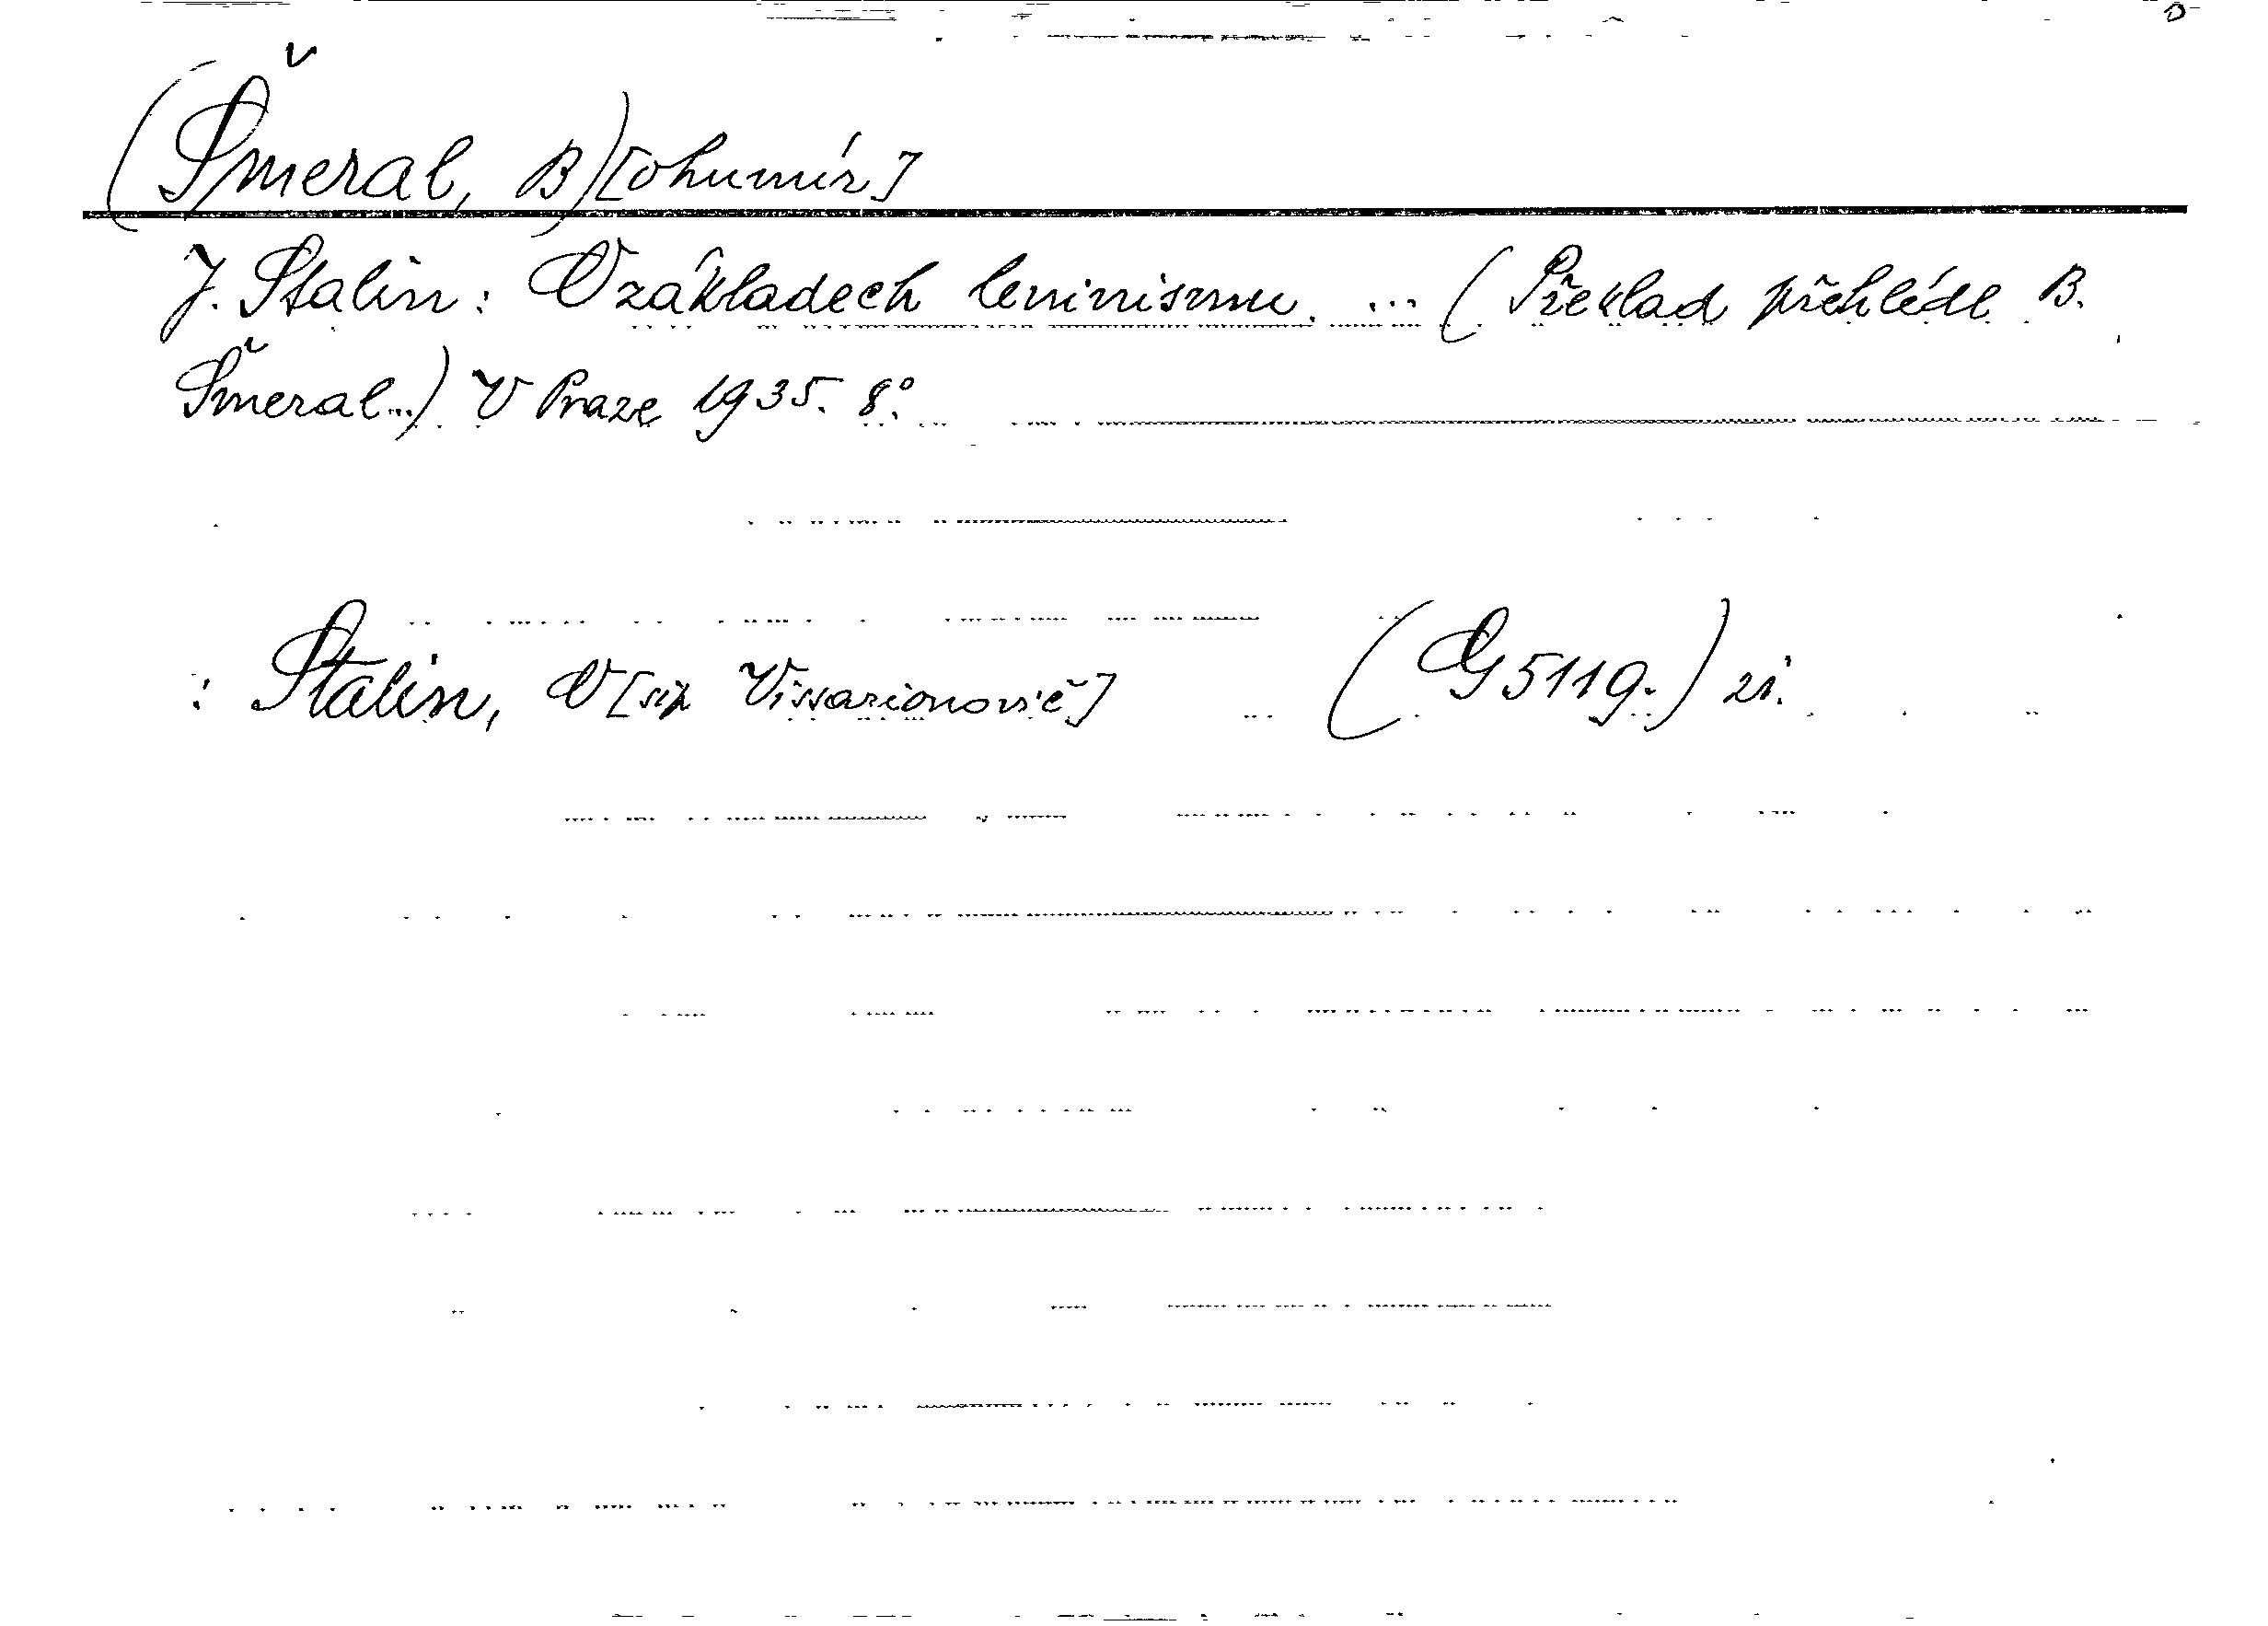 (Šmeral, B)[ohumír]
J. Stalin: O základech leninismu. ... (Překlad přehlédl B.
Šmeral...) V Praze 1935. 8°.
: Stalin, J[osip Vissarionovič] (G 5119.)